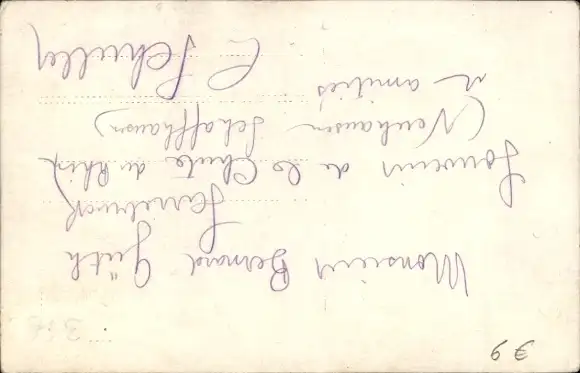 Monsieur Bernard Güth
Sarrebruck
Souvenir de la Chute du Rhin
(Neuhausen Schaffhausen)
et amitiés
C Schuller